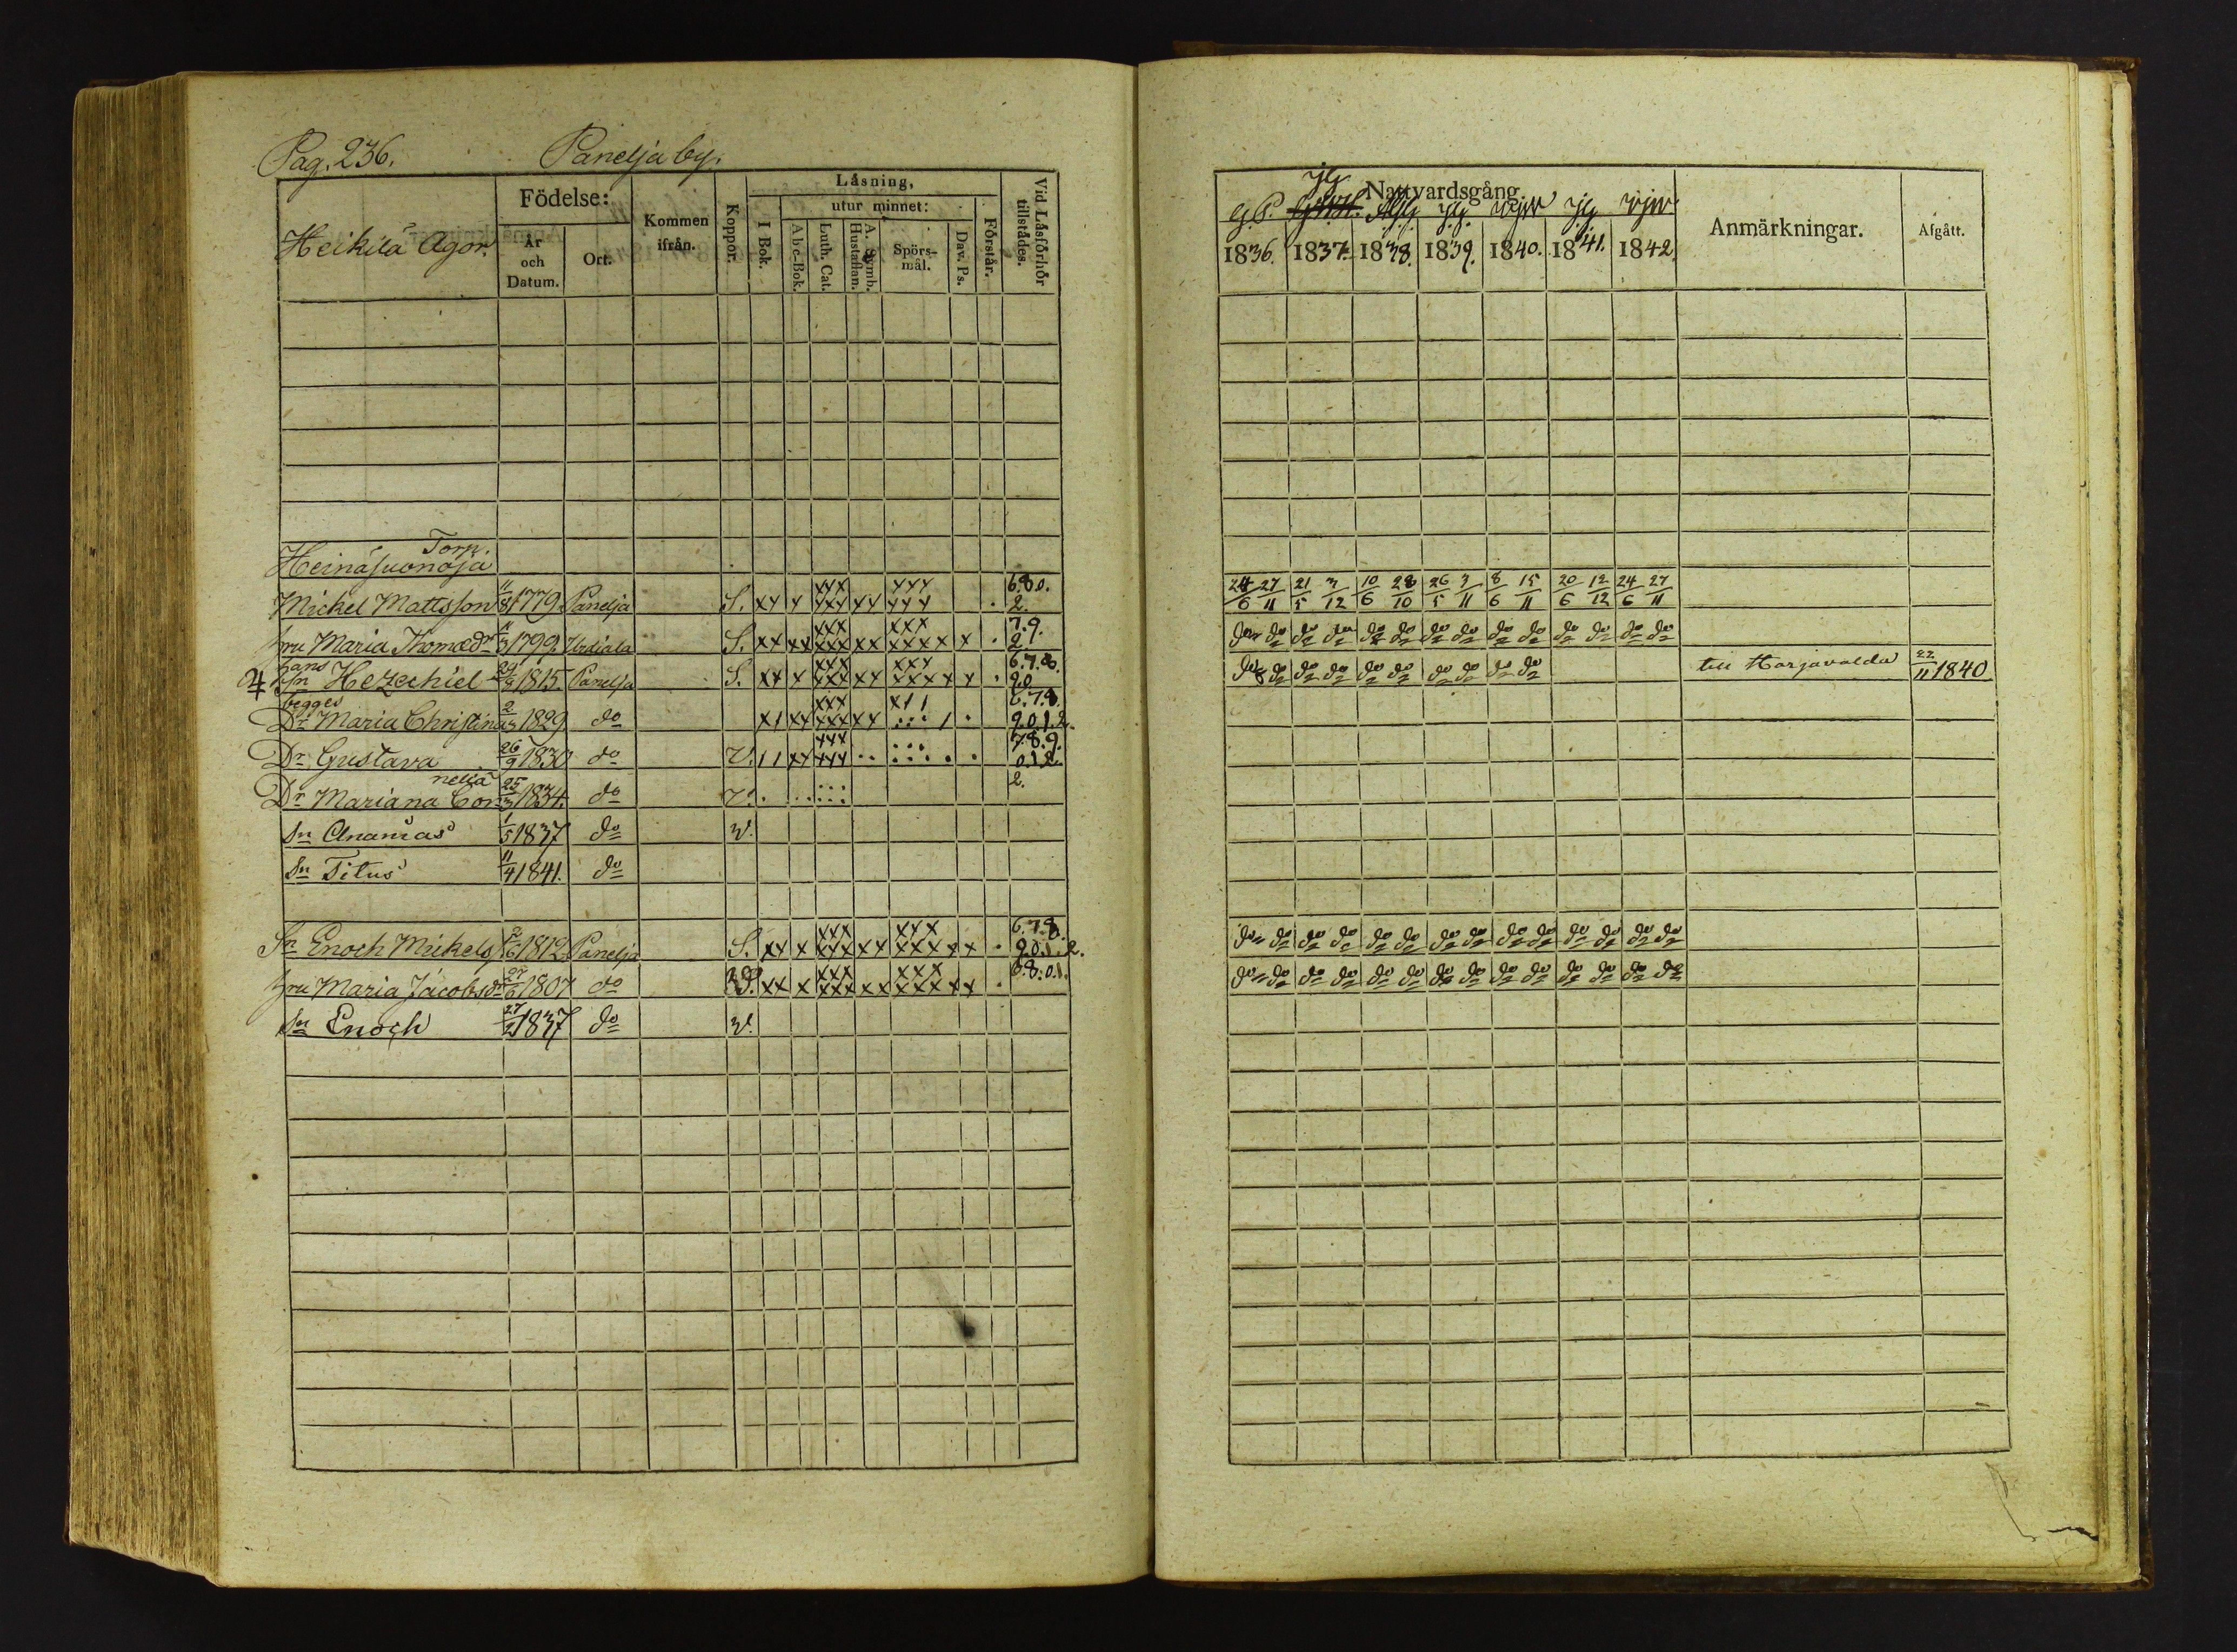 Pag. 236. Panelja by.
Heikilä Ägor.
Födelse:
År och Datum.
Ort.
Kommen ifrån.
Koppor.
Låsning,
I Bok.
utur minnet:
Abc-Bok.
Luth. Cat.
A. Symb. Hustaflan.
Spörsmål.
Dav. Ps.
Förstår.
Vid Låsförhör tillstådes.
Torp.
Heinäsuonoja
Mickel Mattsson 11/8 1779. Panelja S. xx x xxx xxx xx xxx xxx . 6.8.0. 2.
hru Maria Thomædr 11/3 1799. Urdiala S. xx xx xxx xxx xx xxx xxxx x . 7.9. 2.
hans sn Hezechiel 24/9 1815. Panelja S. xx x xxx xxx xx xxx xxxx x . 6.7.8. 20
begges
Dr Maria Christina 2/3 1829. do x1 xx xxx xxx xx x11 6.7.8. 9.0.1.2.
Dr Gustava 26/9 1830 do V. 11 xx xxx xxx 7.8.9. 0.1.2.
Dr Mariana Cornelia 25/3 1834. do V. 2.
Sn Ananias 1/5 1837 do V.
Sn Titus 11/4 1841. do
Sn Enoch Mickelss. 2/6 1812. Panelja S. xx x xxx xxx xx xxx xxxx x . 6.7.8. 9.0.1.2.
hru Maria Jacobsdr 27/6 1807 do S. xx x xxx xxx xx xxx xxxx x . 6.8.0.1.
Sn Enoch 27/2 1837 do V.
Nattvardsgång.
1836. 1837. 1838. 1839. 1840. 1841. 1842.
Anmärkningar.
Afgått.
24/6 27/11 21/5 3/12 10/6 28/10 26/5 3/11 8/6 15/11 20/6 12/12 24/6 27/11
do do do do do do do do do do do do do do
do do do do do do do do do do till Harjavalda 22/11 1840
do do do do do do do do do do do do do do
do do do do do do do do do do do do do do